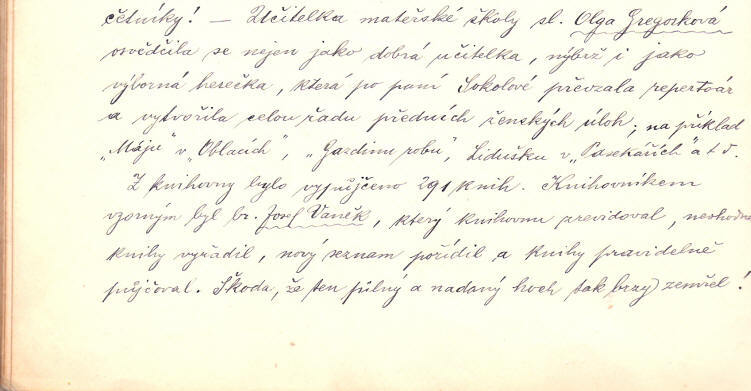 četníky! – Učitelka mateřské školy sl. Olga Gregorková
osvědčila se nejen jako dobrá učitelka, nýbrž i jako
výborná herečka, která po paní Sokolové převzala repertoár
a vytvořila celou řadu předních ženských úloh; na příklad
„Máju" v „Oblacích", „Gazdinu robu", Lidušku v „Pasekářích" a t. d.
Z knihovny bylo vypůjčeno 291 knih. Knihovníkem
vzorným byl br. Josef Vaněk, který knihovnu previdoval, nevhodné
knihy vyřadil, nový seznam pořídil a knihy pravidelně
půjčoval. Škoda, že ten pilný a nadaný hoch tak brzy zemřel!